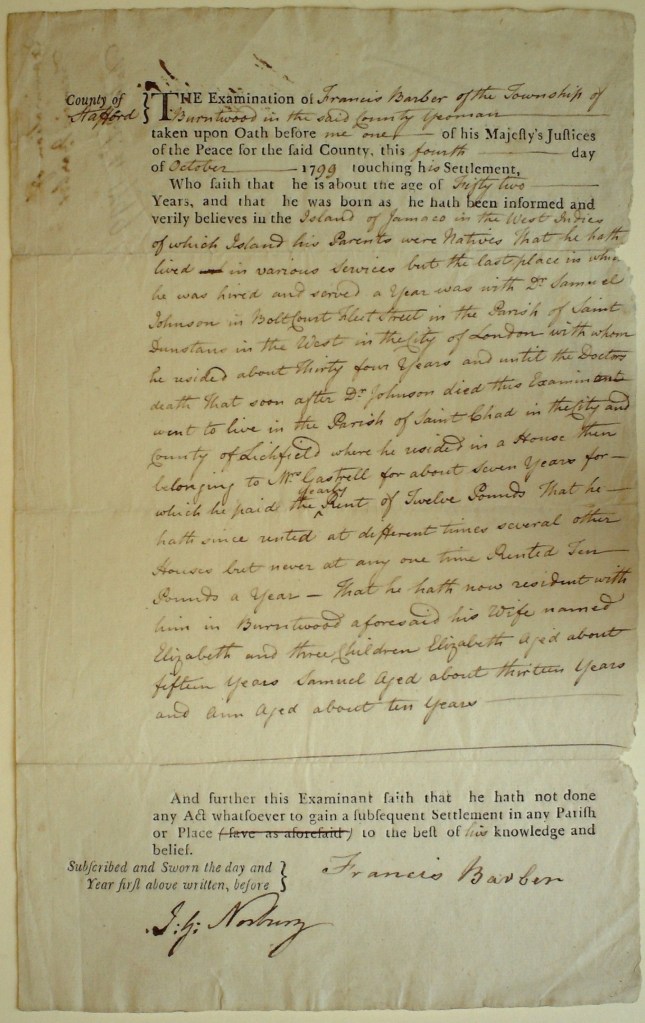 County of
Stafford
THE Examination of Francis Barber of the Township of
Burntwood in the said County Yeoman
taken upon Oath before me one of his Majeſty's Juſtices
of the Peace for the ſaid County, this fourth day
of October 1799 touching his Settlement,
Who ſaith that he is about the age of Fifty two
Years, and that he was born as he hath been informed and
verily believes in the Island of Jamaco in the West Indies
of which Island his Parents were Natives That he hath
lived in various Services but the last place in which
he was hired and served a Year was with Dr. Samuel
Johnson in Bolt Court Fleet Street in the Parish of Saint
Dunstans in the West in the City of London with whom
he resided about thirty four Years and until the Doctors
death That soon after Dr. Johnson died this Examinant
went to live in the Parish of Saint Chad in the City and
County of Lichfield where he resided in a House then
belonging to Mrs. Gastrell for about Seven Years for
which he paid the yearly Rent of Twelve Pounds That he
hath since rented at different times several other
Houses but never at any one time Rented Ten
Pounds a Year – That he hath now resident with
him in Burntwood aforesaid his Wife named
Elizabeth and three Children Elizabeth Aged about
fifteen Years Samuel Aged about thirteen Years
and Ann Aged about ten Years
And further this Examinant ſaith that he hath not done
any Act whatſoever to gain a ſubſequent Settlement in any Pariſh
or Place (ſave as aforeſaid) to the beſt of his knowledge and
belief.
Subſcribed and Sworn the day and
Year firſt above written, before
Francis Barber
J: G: Norbury